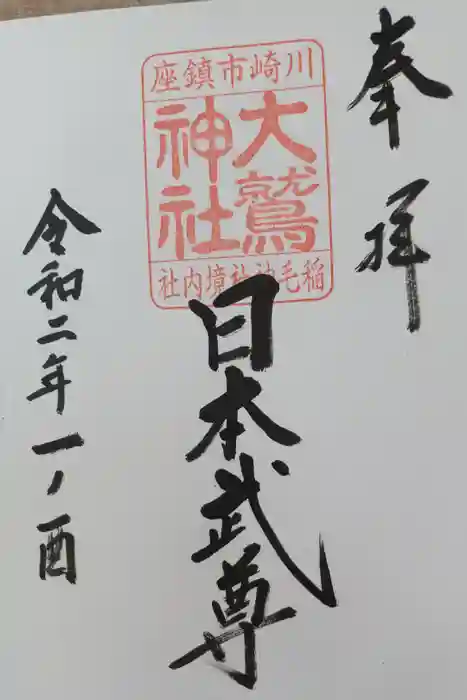 奉拝
川崎市鎮座
大鷲神社
稲毛神社境内社
日本武尊
令和二年一ノ酉